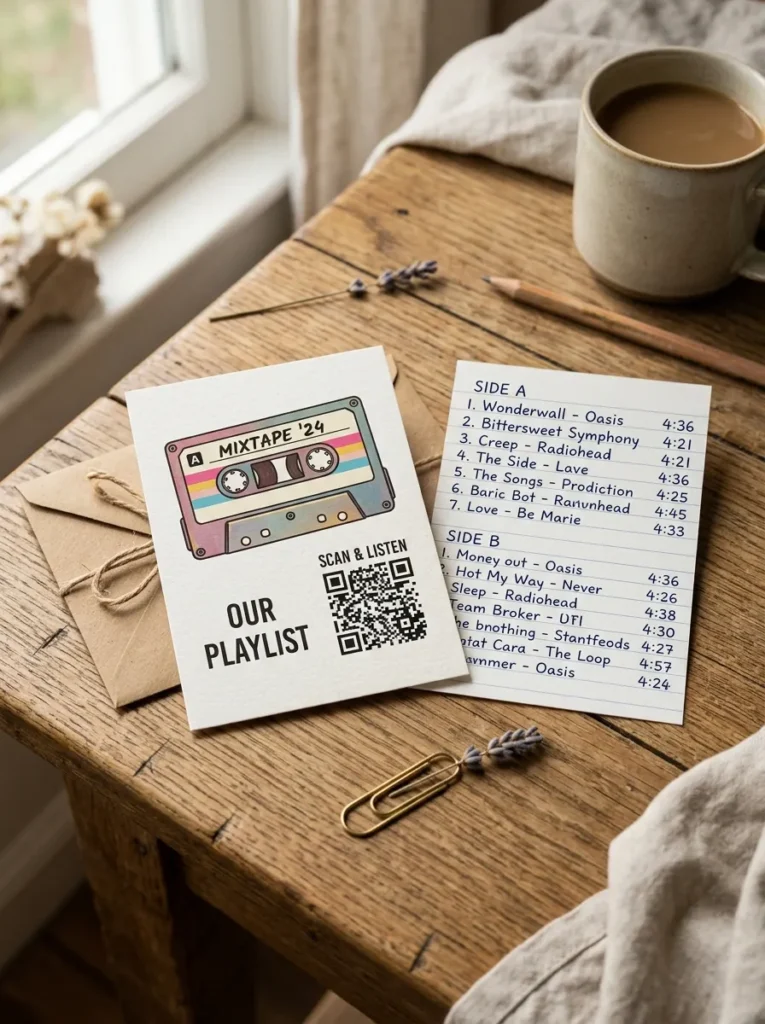 A MIXTAPE '24
SCAN & LISTEN
OUR
PLAYLIST
SIDE A
1. Wonderwall - Oasis 4:36
2. Bittersweet Symphony 4:21
3. Creep - Radiohead 4:21
4. The Side - Lave 4:36
5. The Songs - Prodiction 4:25
6. Baric Bot - Ranunhead 4:45
7. Love - Be Marie 4:33
SIDE B
1. Money out - Oasis 4:36
Hot My Way - Never 4:26
Sleep - Radiohead 4:38
Team Broker - DFI 4:30
- Stantfeods 4:27
Cara - The Loop 4:57
- Oasis 4:24